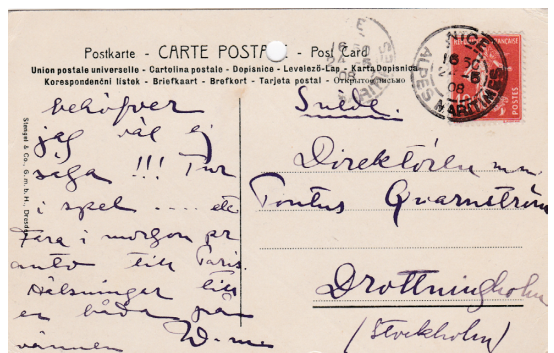 Postkarte - CARTE POSTALE - Post Card
Union postale universelle - Cartolina postale - Dopisnice - Levelező-Lap - Karta Dopisnica
Korespondenční listek - Briefkaart - Brefkort - Tarjeta postal - Открытое письмо
NICE
16 30
08
ALPES MARITIMES
POSTES
Stengel & Co., G. m. b. H., Dresden
behöfver
jag väl ej
säga !!! Tur
i spel ... etc
Fara i morgon pr
auto till Paris.
Hälsningar till
en båda från
vännen W-m
Suède.
Direktören m.m.
Pontus Quarnström
Drottningholm
(Stockholm)